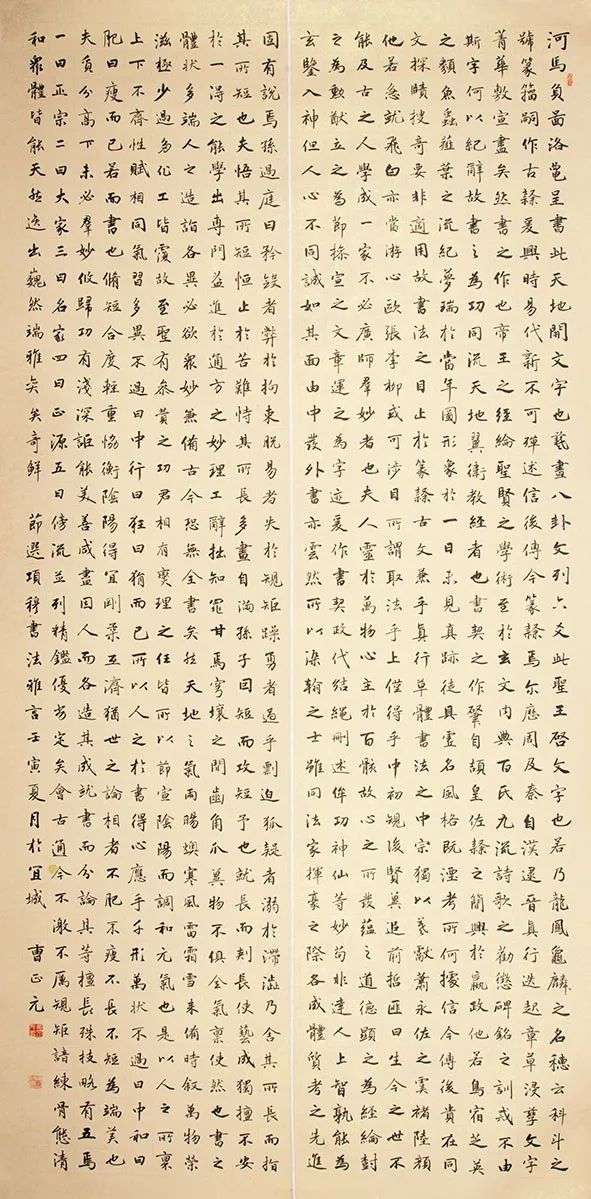 河馬負圖洛龜呈書此天地開文字也羲畫八卦文列六爻此聖王啓文字也若乃龍鳳龜麟之名穗云科斗之
號篆籀嗣作古隸爰興時易代新不可殫述信後傳今篆隸焉尔歷周及秦自漢逮晉真行迭起章草浸孳文字
菁華敷宣盡矣然書之作也帝王之經綸聖賢之學術至於玄文內典百氏九流詩歌之勸懲碑銘之訓戒不由
斯字何以紀辭故書之為功同流天地翼衛教經者也書契之作肇自頡皇佐隸之簡興於嬴政他若鳥宿芝英
之類魚蟲薤葉之流紀夢瑞於當年圖形象於一日未見真跡徒具虛名風格既湮考所何據信今傳後貴在同
文探賾搜奇要非適用故書法之目止於篆隸古文兼乎真行草體書法之中宗獨以羲獻蕭永佐之虞褚陸顏
他若急就飛白亦當游心歐張李柳或可涉目所謂取法乎上僅得乎中初規後賢冀追前哲匪曰生今之世不
能及古之人學成一家不必廣師羣妙者也夫人靈於萬物心主於百骸故心之所發蘊之道德顯之為經綸尌
之為勳猷立之為節操宣之文章運之為字迹爰作書契政代結繩刪述侔功神仙等妙苟非達人上智孰能為
玄鑒入神但人心不同誠如其面由中發外書亦雲然所以染翰之士雖同法家揮毫之際各成體質考之先進
固有說焉孫過庭曰矜斂者弊於拘束脫易者失於規矩躁勇者過乎剽迫狐疑者溺於滯澁乃舍其所長而指
其所短也夫悟其所短恒止於苦難恃其所長多畫自滿孫子因短而攻短予也就長而刺長使藝成獨擅不安
於一得之能學出專門益進於通方之妙理工辭拙知罪甘焉穹壤之間齒角爪翼物不俱全氣稟使然也書之
體狀多端人之造詣各異必欲衆妙兼備古今恐無全書矣然天地之氣雨暘燠寒風雷霜雪来備時叙萬物榮
滋極少過多化工皆覆故至聖有叅贊之功君相有燮理之任皆所以節宣陰陽而調和元氣也是以人之所稟
上下不齊性賦相同氣習多異不過曰中行曰狂曰狷而已所以人之於書得心應手千形萬狀不過曰中和曰
肥曰瘦而已若而書也脩短合度輕重協衡陰陽得宜剛柔互濟猶世之論相者不肥不瘦不長不短為端美也
夫質分高下未必羣妙攸歸功有淺深詎能美善咸盡因人而各造其成就書而分論其等擅長殊技略有五焉
一曰正宗二曰大家三曰名家四曰正源五曰傍流並列精鑑優劣定矣會古通今不激不厲規矩諳練骨態清
和衆體皆能天然逸出巍然端雅矣奇鮮 節選項穆書法雅言壬寅夏月於宜城 曹正元